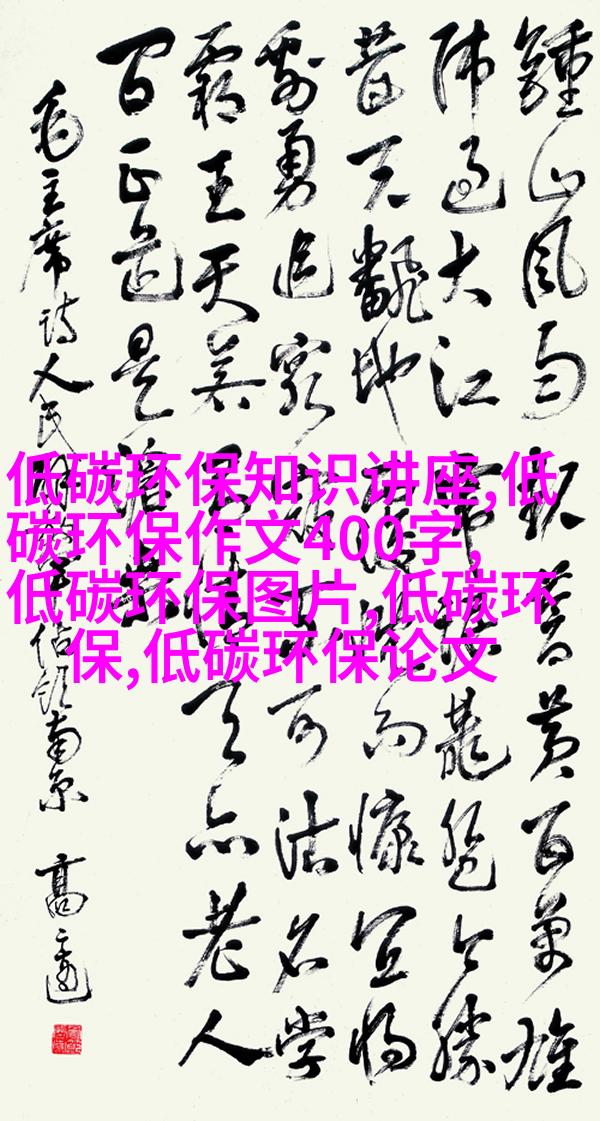 鍾山风雨起苍黄百万雄
师过大江虎踞龙盘今胜
昔天翻地覆慨而慷宜将
剩勇追穷寇不可沽名学
霸王天若有情天亦老人
间正道是沧桑
毛主席诗人民解放军占领南京
低碳环保知识讲座,低
碳环保作文400字,
低碳环保图片,低碳环
保,低碳环保论文